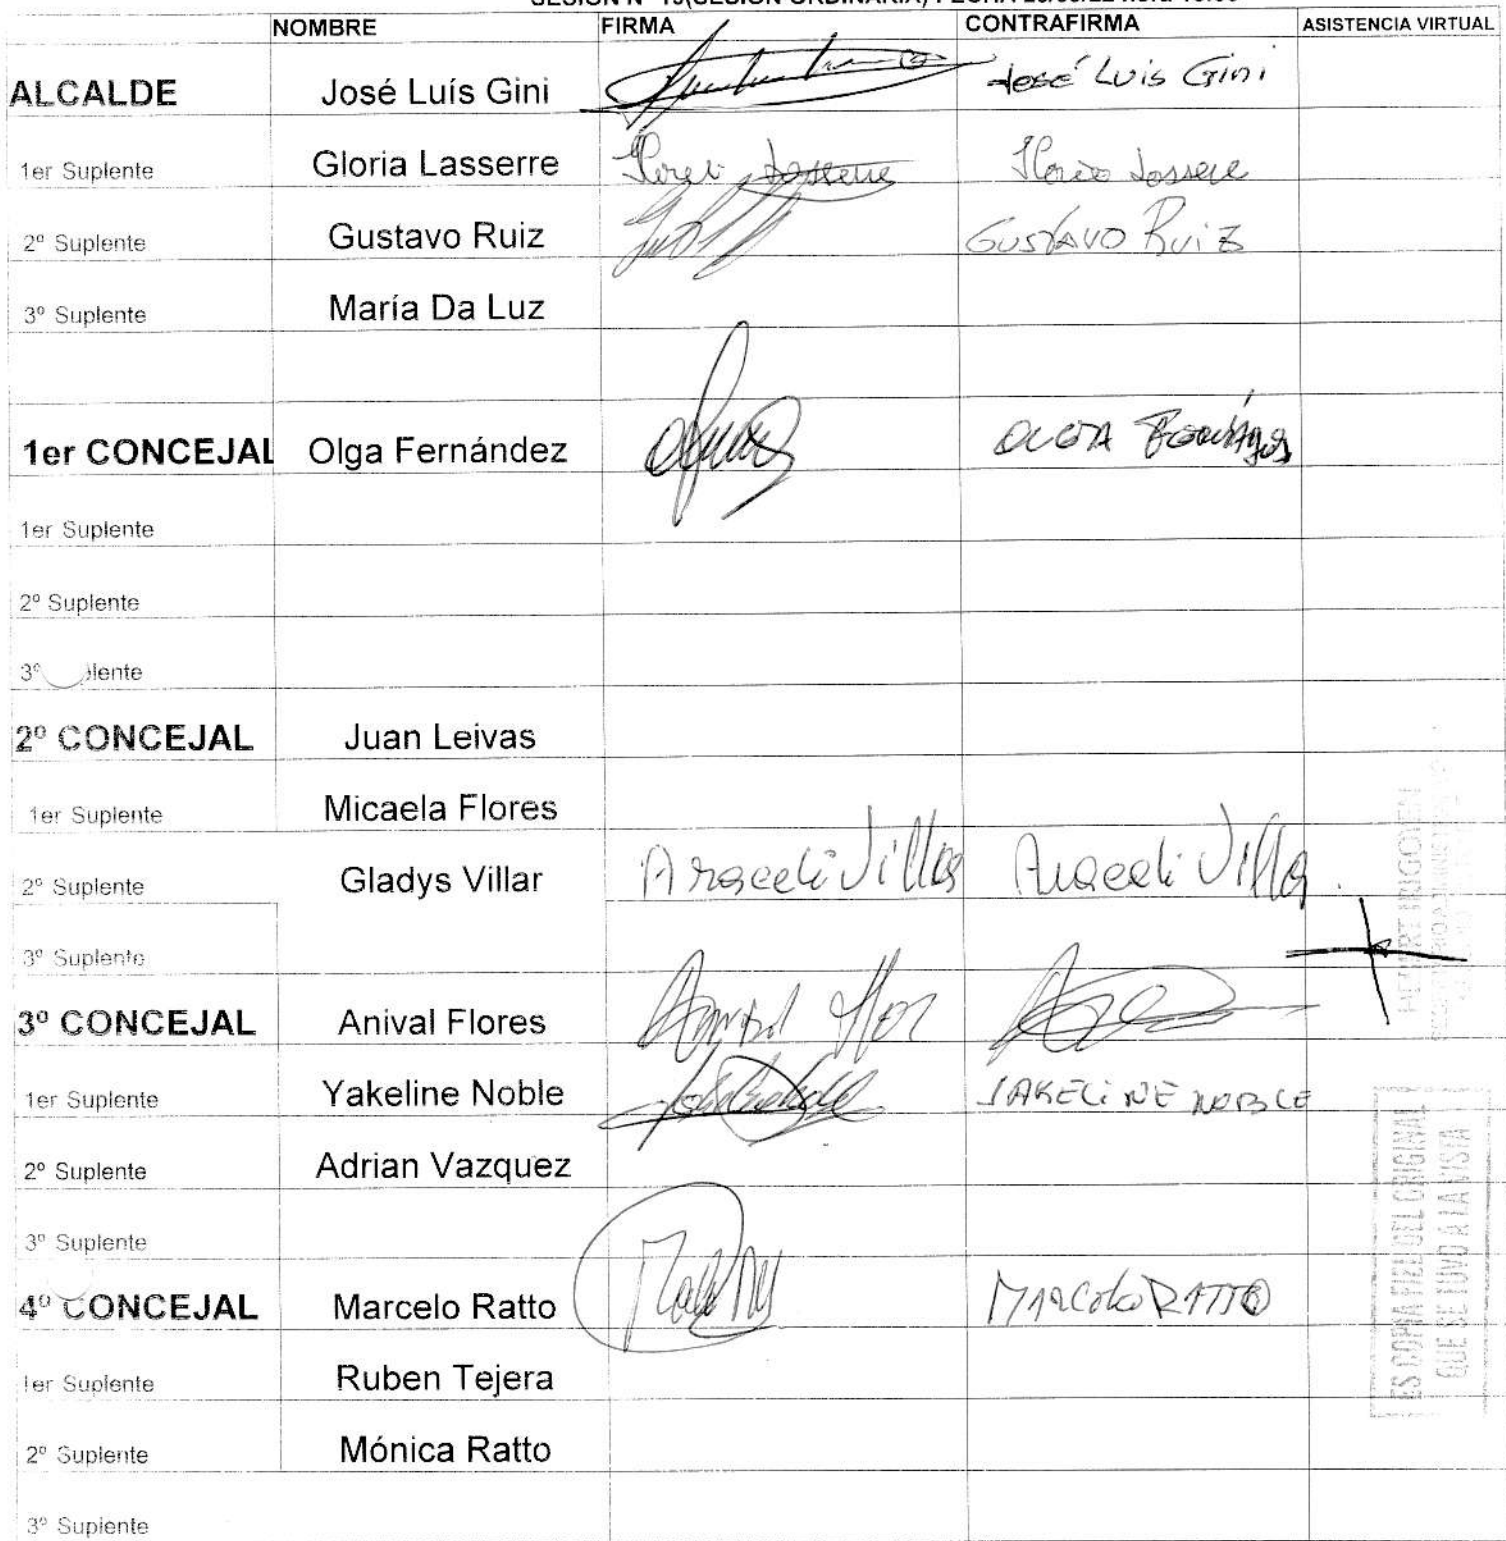 NOMBRE FIRMA CONTRAFIRMA ASISTENCIA VIRTUAL
ALCALDE José Luís Gini José Luis Gini
1er Suplente Gloria Lasserre
2º Suplente Gustavo Ruiz GUSTAVO RUIZ
3º Suplente María Da Luz
1er CONCEJAL Olga Fernández
1er Suplente
2º Suplente
3º plente
2º CONCEJAL Juan Leivas
1er Suplente Micaela Flores
2º Suplente Gladys Villar Araceli Villar Araceli Villar
3º Suplente
3º CONCEJAL Anival Flores
1er Suplente Yakeline Noble YAKELINE NOBLE
2º Suplente Adrian Vazquez
3º Suplente
4º CONCEJAL Marcelo Ratto MARCELO RATTO
1er Suplente Ruben Tejera
2º Suplente Mónica Ratto
3º Suplente
ES COPIA FIEL DEL ORIGINAL
QUE SE TUVO A LA VISTA